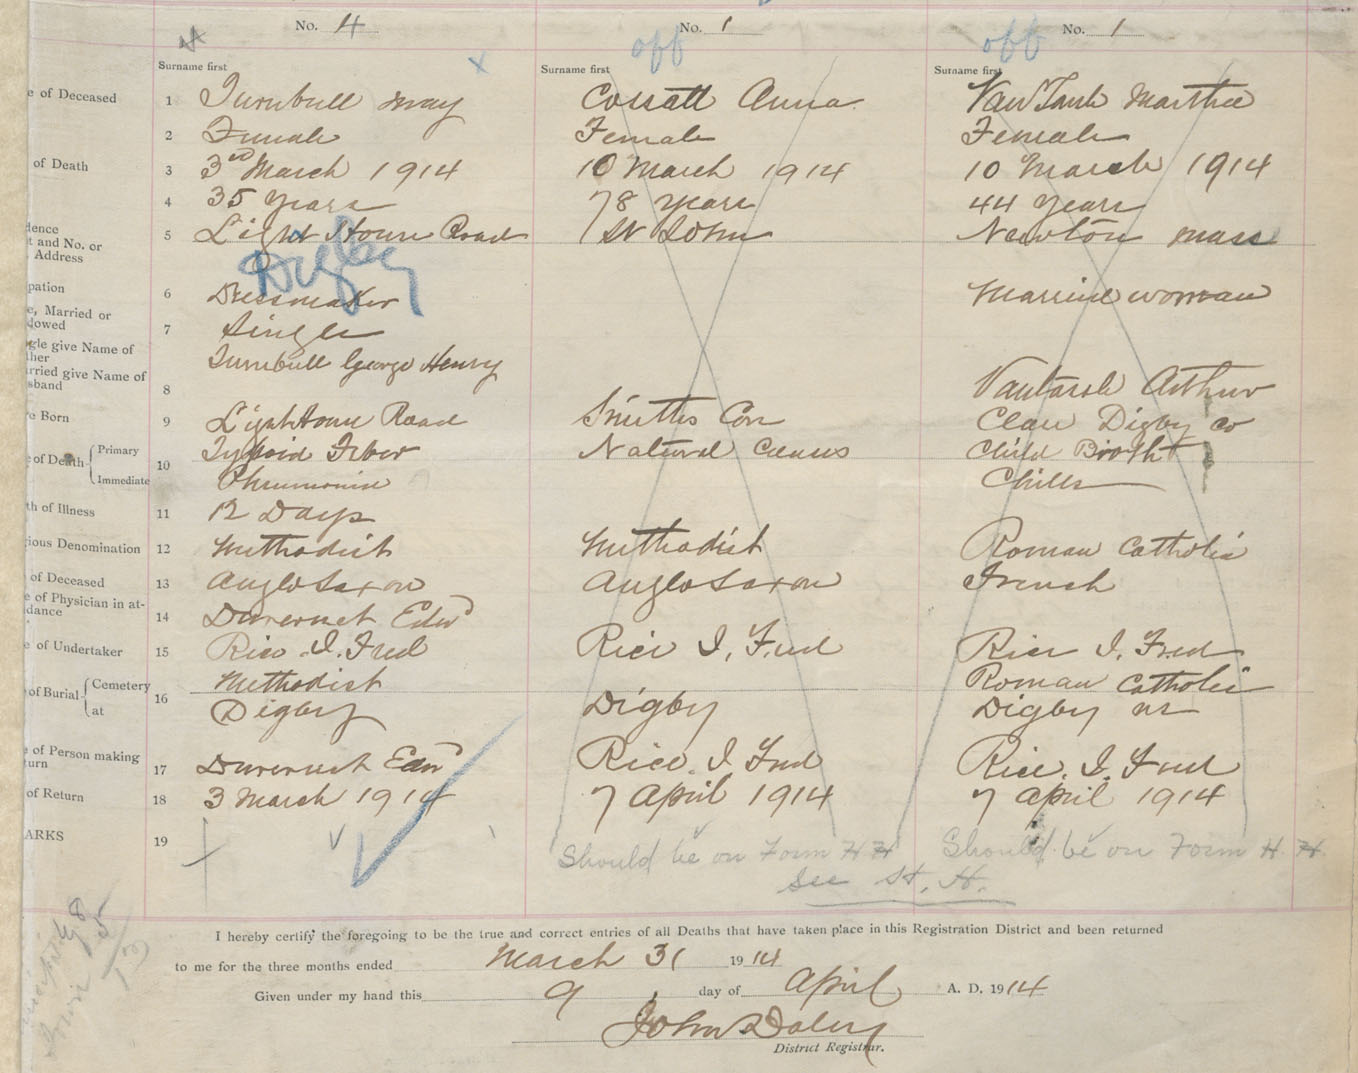 No. 4 No. 1 No. 1
off off
Surname first Surname first Surname first
e of Deceased 1 Turnbull May Cossett Anna VanTassle Martha
2 Female Female Female
of Death 3 3rd March 1914 10 March 1914 10 March 1914
4 35 years 78 years 44 years
dence
t and No. or
Address
5 Light House Road St John Newton Mass
Digby
pation 6 Dressmaker Married woman
e, Married or
dowed
7 Single
gle give Name of
ther
rried give Name of
sband
8 Turnbull George Henry Vantassle Arthur
e Born 9 Light House Road Smiths Cove Clare Digby Co
e of Death Primary
Immediate
10 Typhoid Fever Natural Causes Child Birth
Pneumonia Chills
th of Illness 11 12 Days
ious Denomination 12 Methodist Methodist Roman Catholic
of Deceased 13 Anglo Saxon Anglo Saxon French
e of Physician in at-
dance
14 Duvernet Edw
e of Undertaker 15 Rice J. Fred Rice J. Fred Rice J. Fred
of Burial Cemetery
at
16 Methodist Roman Catholic
Digby Digby Digby NS
e of Person making
turn
17 Duvernet Edw Rice J Fred Rice. J. Fred
of Return 18 3 March 1914 7 April 1914 7 April 1914
ARKS 19
Should be on Form H Should be on Form H
See St. H.
I hereby certify the foregoing to be the true and correct entries of all Deaths that have taken place in this Registration District and been returned
to me for the three months ended March 31 1914
Given under my hand this 9 day of April A. D. 1914
John Daley
District Registrar.